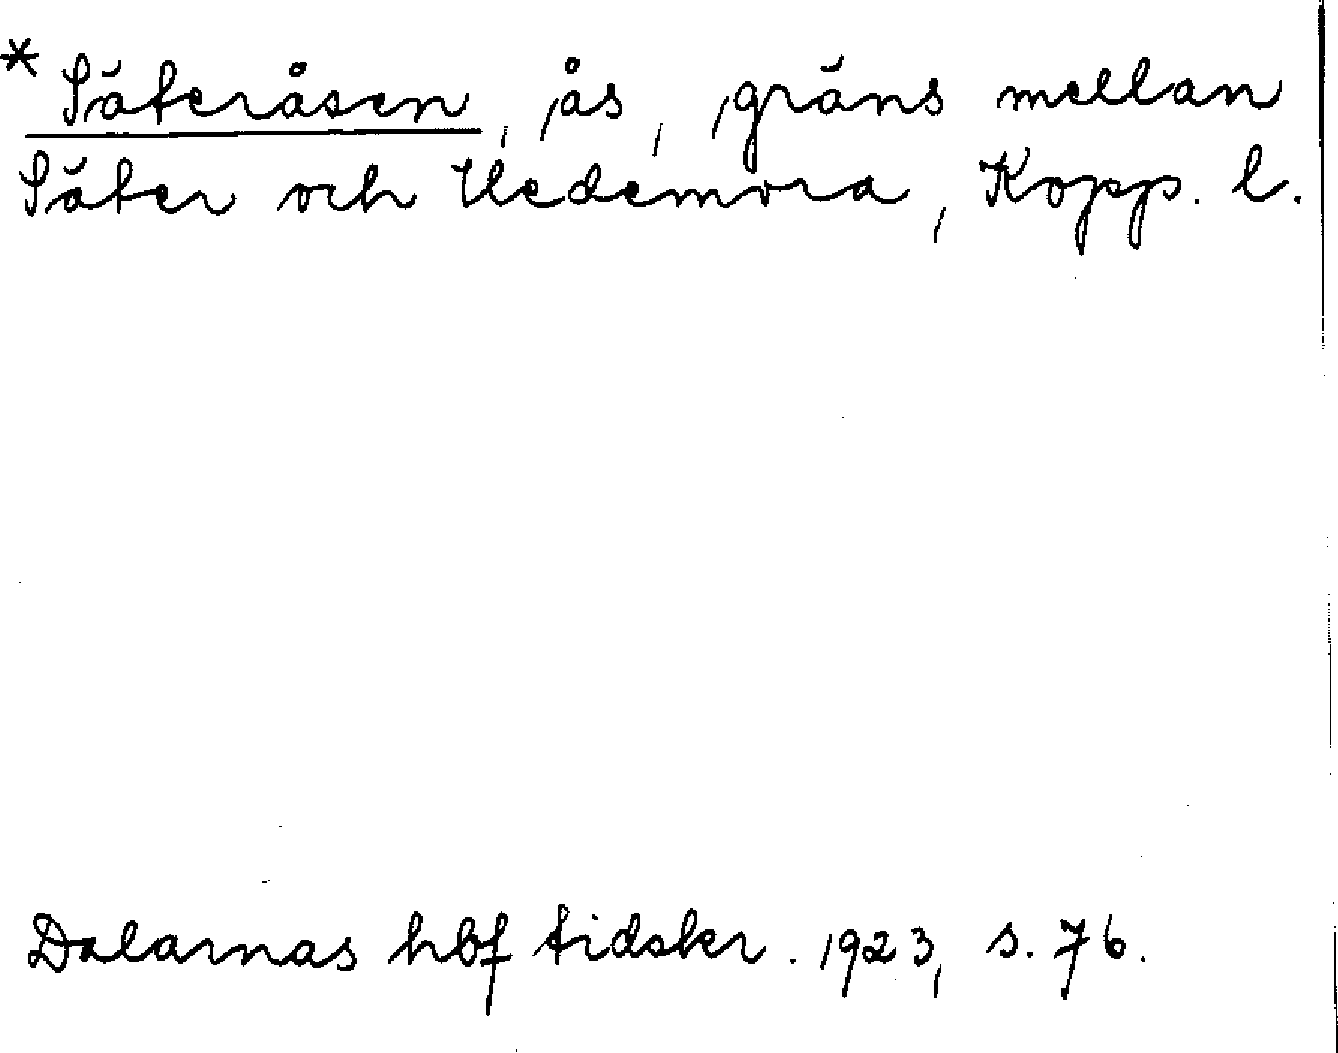 * Säteråsen, ås, gräns mellan
Säter och Hedemora, Kopp. l.
Dalarnas hbf tidskr. 1923, s. 76.